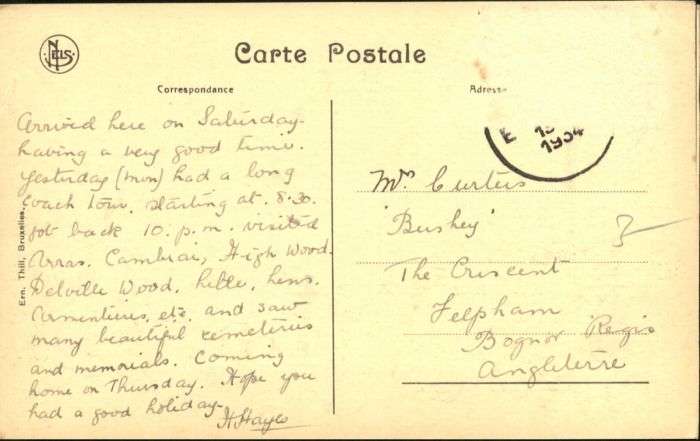 NELS
Carte Postale
Correspondance
Adresse
Arrived here on Saturday
having a very good time.
Yesterday (Mon) had a long
coach tour, starting at 8.30.
got back 10. p.m. visited
Arras. Cambrai, High Wood.
Delville Wood, Lille, Lens.
Armentieres, etc. and saw
many beautiful cemeteries
and memorials. Coming
home on Thursday. Hope you
had a good holiday.
H Hayes
Ern. Thill, Bruxelles.
1934
Mrs Curteis
'Bushey'
The Crescent
Felpham
Bognor Regis
Angleterre